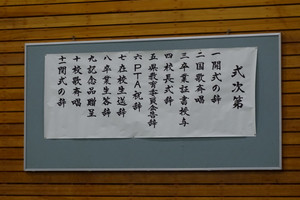 式次第
一開式の辞
二国歌斉唱
三卒業証書授与
四校長式辞
五県教育委員会告辞
六PTA祝辞
七在校生送辞
八卒業生答辞
九記念品贈呈
十校歌斉唱
十一閉式の辞